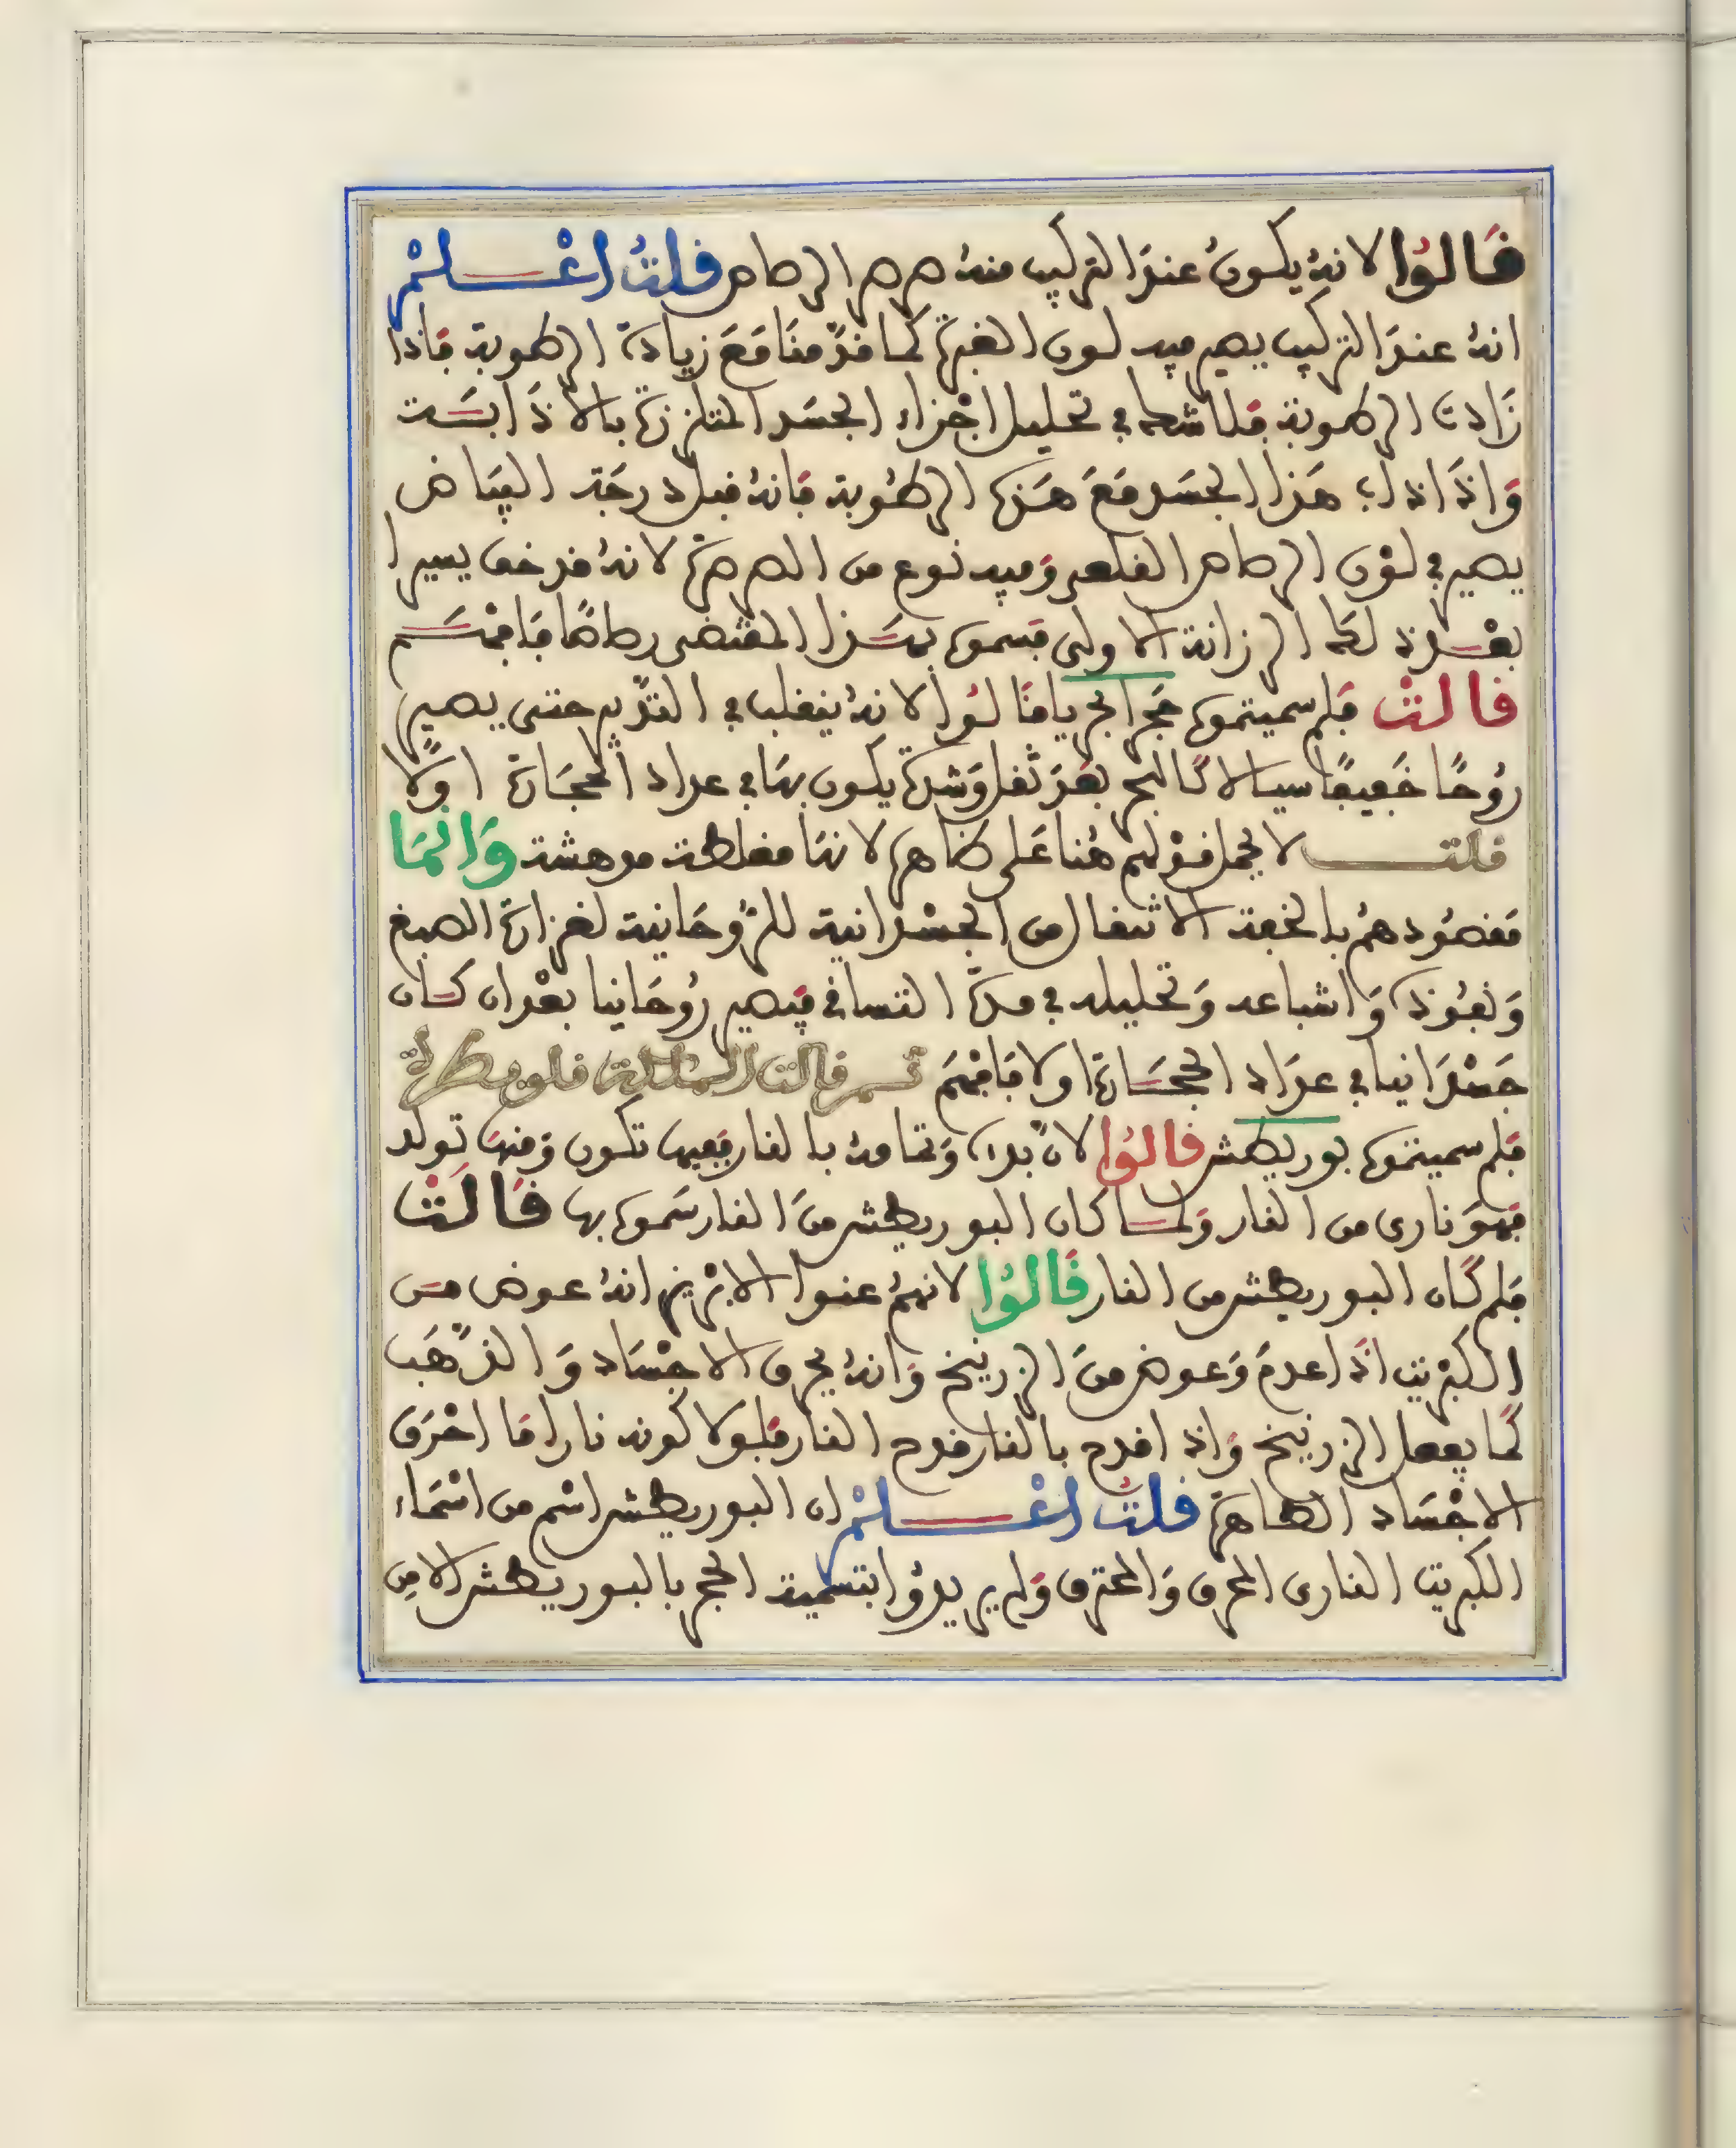 قَالُوا لانهُ يكونُ عندَ التركيب منهُ صرصر الرصاص قلتُ اعْلمْ
انهُ عندَ التركيب يصير فيه لون الغبرة كما قدّمنَا مَعَ زيادة الرطوبة فَاذا
زَادت الرطوبة فلا شك في تحليل اجْزاء الجسَد المتلززة بالاذَابَة
وَاذَا ذاب هَذا الجسَد مَعَ هَذه الرطُوبة فَانهُ قبل درجَة البيَاض
يصير في لوْن الرصاص القلعي وَفيه نوع من الصرصرة لانهُ قد خف يسيرا
بعْد تلك الرزانة الاولى فسموه بهَذا المقتضى رصاصًا فَافهَم
قالتْ فلم سميتموه حَجر البحر يا قَالوُا لانهُ ينقلب في التدْبير حتى يصير
رُوحًا خَفيفًا سيالا كَالبحر بعْدَ ثقل وَشدة يكون بهَا في عداد الحجَارة اوّلا
قلت لا يحمل قوْلهم هُنا عَلى ظاهره لانهَا مغلطة مدهشة وَانمَا
مَقصُودهمُ بالخفة الانتقال من الجسْدانية للرُّوحَانية لغزارة الصبغ
وَنفُوذه وَاشباعه وَتحليله في مدة التساقي فيَصير رُوحَانيا بعْد ان كَان
جَسْدَانيا في عدَاد الحجَارة اولا فَافهَم ثم قالت الملكة قلوبطرة
فلم سميتموه بوريطش قالوُا لانّ بدأه وَتمامهُ بالنار ففيها تكون وَمنهَا تولد
فهوَ نارى من النار وَلما كَان البوريطش منَ النار سَموه بها قَالَتْ
فلم كَان البوريطش من النار قَالوُا لانهمُ عنوا الابْريز انهُ عوض مَن
الكبْريت اذَا عدمَ وَعوض منَ الزرنيخ وَانهُ يحرق الاجْسَاد وَالذّهَب
كَما يفعل الزرنيخ وَاذا قدح بالنار قدح النار فلولا كونه نارا مَا احْرَق
الاجْسَاد الطاهرة قلتُ اعْلمْ ان البوريطش اسْم من اسْمَاء
الكبريت النارى المحرق وَالمحترق وَلم يريدُوا بتسْمية الحجر بالبوريطش الا مِن